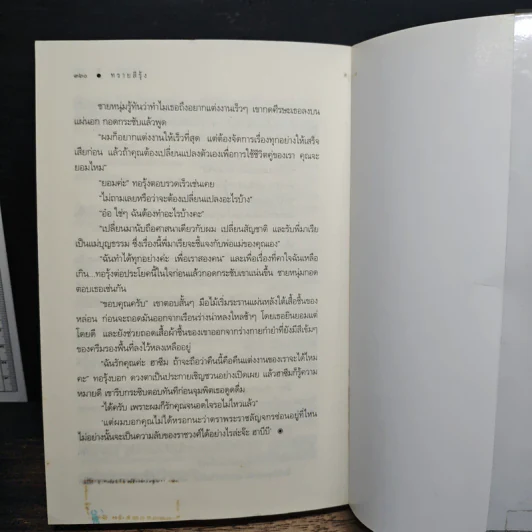 ๓๒๐ ● ทรายสีรุ้ง
ชายหนุ่มรู้ทันว่าทำไมเธอถึงอยากแต่งงานเร็วๆ เขากดศีรษะเธอลงบน
แผ่นอก กอดกระชับแล้วพูด
“ผมก็อยากแต่งงานให้เร็วที่สุด แต่ต้องจัดการเรื่องทุกอย่างให้เสร็จ
เสียก่อน แล้วถ้าคุณต้องเปลี่ยนแปลงตัวเองเพื่อการใช้ชีวิตคู่ของเรา คุณจะ
ยอมไหม”
“ยอมค่ะ” ทอรุ้งตอบรวดเร็วเช่นเคย
“ไม่ถามเลยหรือว่าจะต้องเปลี่ยนแปลงอะไรบ้าง”
“อ๋อ ใช่ๆ ฉันต้องทำอะไรบ้างคะ”
“เปลี่ยนมานับถือศาสนาเดียวกับผม เปลี่ยนสัญชาติ และรับพี่มาเรีย
เป็นแม่บุญธรรม ซึ่งเรื่องนี้พี่มาเรียจะชี้แจงกับพ่อแม่ของคุณเอง”
“ฉันทำได้ทุกอย่างค่ะ เพื่อเราสองคน” และเพื่อเรื่องที่คาใจฉันเหลือ
เกิน...ทอรุ้งต่อประโยคนี้ในใจก่อนแล้วกอดกระชับเขาแน่นขึ้น ชายหนุ่มกอด
ตอบเธอเช่นกัน
“ขอบคุณครับ” เขาตอบสั้นๆ มือไม้เริ่มระรานแผ่นหลังใต้เสื้อชั้นของ
หล่อน ก่อนจะถอดมันออกจากเรือนร่างน่าหลงใหลช้าๆ โดยเธอยินยอมแต่
โดยดี และยังช่วยถอดเสื้อผ้าชิ้นของเขาออกจากร่างกายกำยำที่ยังมีสีเข้มๆ
ของครีมรองพื้นที่ลงไว้หลงเหลืออยู่
“ฉันรักคุณค่ะ ฮาซีม ถ้าจะถือว่าคืนนี้คือคืนแต่งงานของเราจะได้ไหม
คะ” ทอรุ้งบอก ดวงตาเป็นประกายเชิญชวนอย่างเปิดเผย แล้วฮาซีมก็รู้ความ
หมายดี เขารีบกระชับตอบทันทีก่อนจุมพิตเธอดูดดื่ม
“ได้ครับ เพราะผมก็รักคุณจนอดใจรอไม่ไหวแล้ว”
“แต่ผมบอกคุณไม่ได้หรอกนะว่าตราพระราชลัญจกรซ่อนอยู่ที่ไหน
ไม่อย่างนั้นจะเป็นความลับของราชวงศ์ได้อย่างไรล่ะจ๊ะ ฮาบีบี’ ●